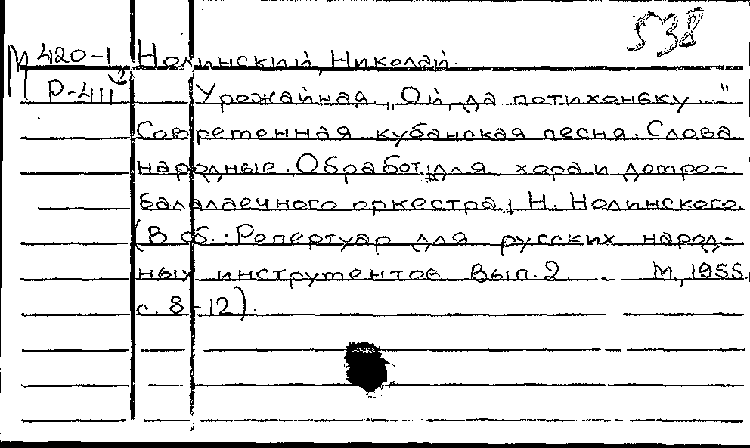 538
М 420-1 Нолинский, Николай.
Р-411 Урожайная „Ой, да потихоньку..."
Современная кубанская песня. Слова
народные. Обработ. для хора и домро-
балалаечного оркестра, Н. Нолинского.
(В сб.: Репертуар для русских народ-
ных инструментов Вып. 2 . М., 1955,
с. 8-12).